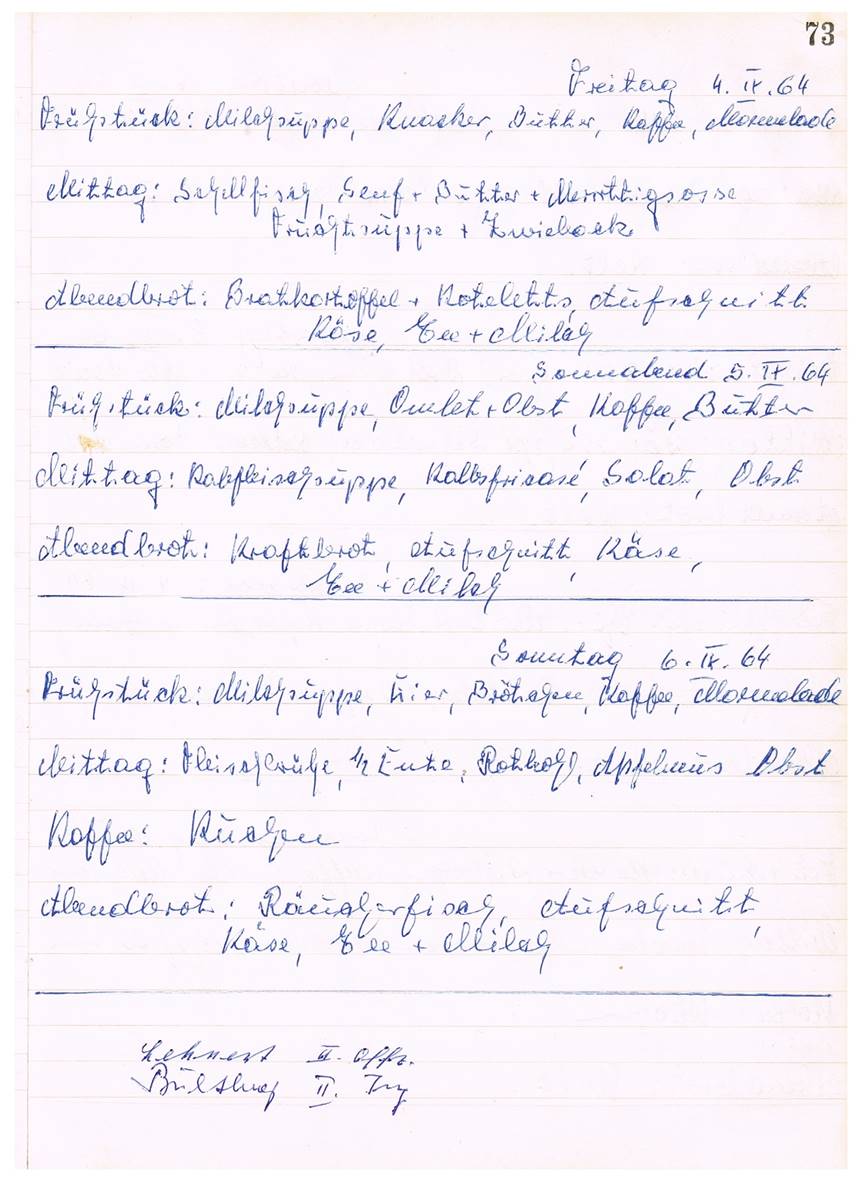 73
Freitag 4. IX. 64
Frühstück: Milchsuppe, Knacker, Butter, Kaffee, Marmelade
Mittag: Schellfisch, Senf + Butter + Merrettigsosse
Fruchtsuppe + Zwieback
Abendbrot: Bratkartoffel + Koteletts, Aufschnitt
Käse, Tee + Milch
Sonnabend 5. IX. 64
Frühstück: Milchsuppe, Omlet + Obst, Kaffee, Butter
Mittag: Kalbfleischsuppe, Kalbsfricasé, Salat, Obst
Abendbrot: Kraftbrot, Aufschnitt, Käse,
Tee + Milch
Sonntag 6. IX. 64
Frühstück: Milchsuppe, Eier, Brötchen, Kaffee, Marmelade
Mittag: Fleischbrühe, 1/2 Ente, Rotkohl, Apfelmus Obst
Kaffee: Kuchen
Abendbrot: Räucherfisch, Aufschnitt,
Käse, Tee + Milch
Lehnert II. Offz.
II. Ing